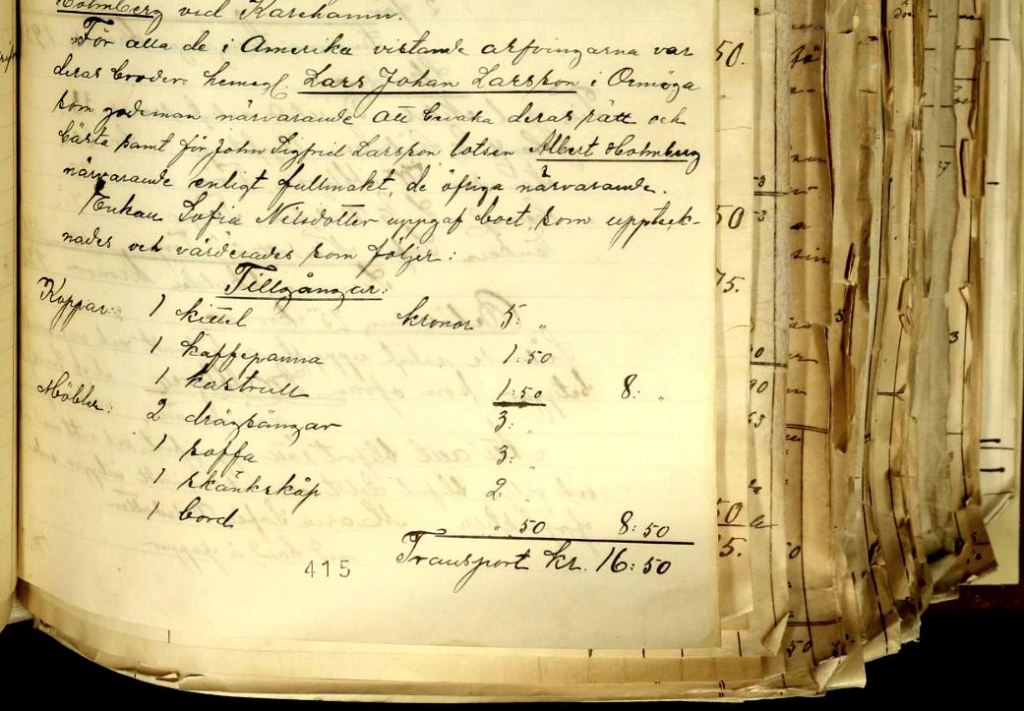 Holmberg vid Karehamn.
För alla de i Amerika vistande arfvingarna var
deras broder hemegl. Lars Johan Larsson i Ormöga
som godeman närvarande att bevaka deras rätt och
bästa samt för John Sigfrid Larsson lotsen Albert Holmberg
närvarande enligt fullmakt, de öfriga närvarande.
Enkan Sofia Nilsdotter uppgaf boet, som uppteck-
nades och värderades som följer:
Tillgångar:
Koppar: 1 kittel kronor 5: „
1 kaffepanna 1:50
1 kastrull 1:50 8: „
Möbler: 2 dragsängar 3: „
1 soffa 3: „
1 skänkskåp 2
1 bord „ 50 8:50
Transport kr. 16:50
415